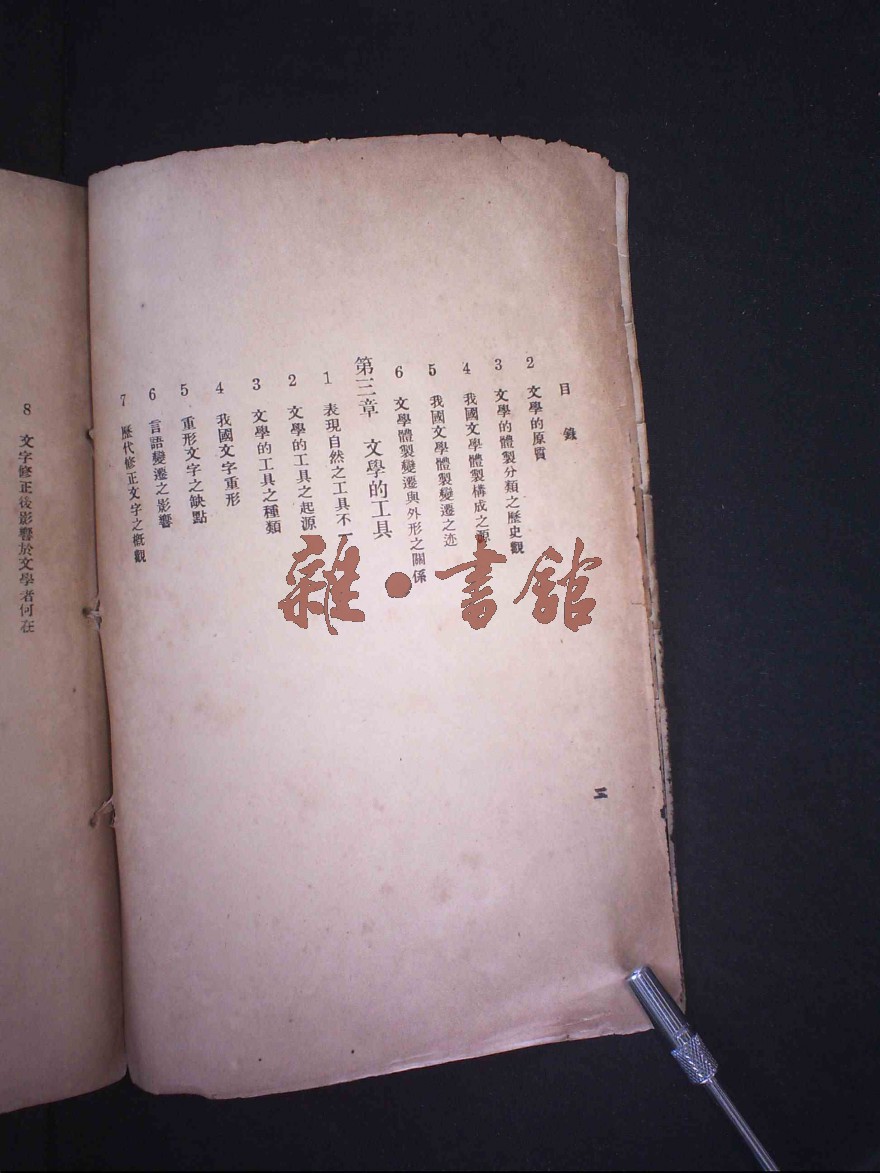 目錄
2 文學的原質
3 文學的體製分類之歷史觀
4 我國文學體製構成之源
5 我國文學體製變遷之迹
6 文學體製變遷與外形之關係
第三章 文學的工具
1 表現自然之工具不一
2 文學的工具之起源
3 文學的工具之種類
4 我國文字重形
5 重形文字之缺點
6 言語變遷之影響
7 歷代修正文字之概觀
二
8 文字修正後影響於文學者何在
雜·書館